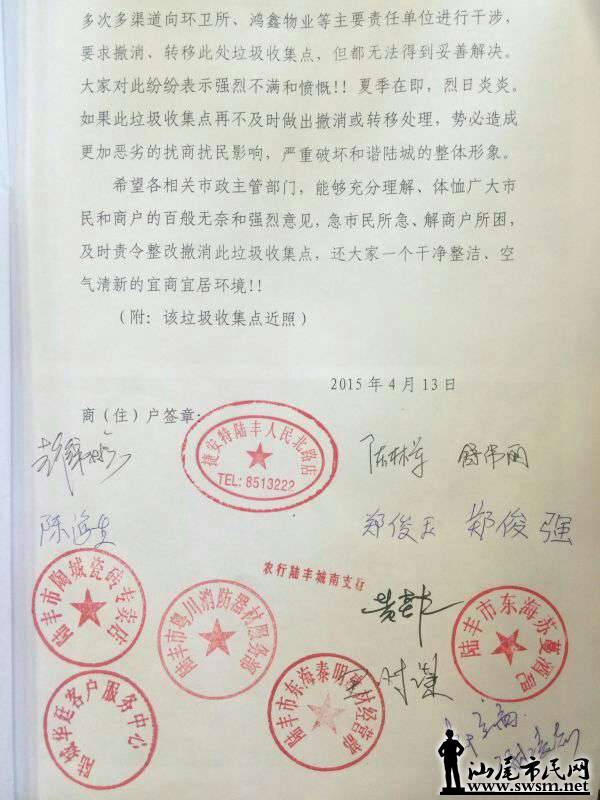 多次多渠道向环卫所、鸿鑫物业等主要责任单位进行干涉，
要求撤消、转移此处垃圾收集点，但都无法得到妥善解决。
大家对此纷纷表示强烈不满和愤慨!! 夏季在即，烈日炎炎。
如果此垃圾收集点再不及时做出撤消或转移处理，势必造成
更加恶劣的扰商扰民影响，严重破坏和谐陆城的整体形象。
希望各相关市政主管部门，能够充分理解、体恤广大市
民和商户的百般无奈和强烈意见，急市民所急、解商户所困，
及时责令整改撤消此垃圾收集点，还大家一个干净整洁、空
气清新的宜商宜居环境!!
(附：该垃圾收集点近照)
2015 年 4 月 13 日
商（住）户签章：
捷安特陆丰人民北路店
TEL: 8513222
郑俊玉 郑俊强
农行陆丰城南支行
陆丰市陶城瓷砖专卖店
陆丰市粤川消防器材服务部
陆丰市东海苏蔓酒吧
陆丰市东海泰明建材经营部
客户服务中心
汕尾市民网
www.swsm.net